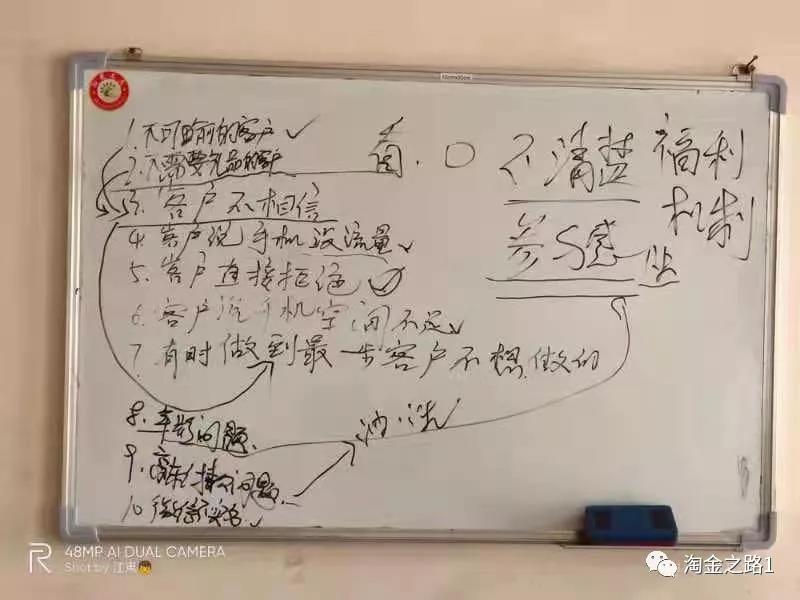 1. 不可面前的客户 ✓
2. 不需要礼品的客户
3. 客户不相信
4. 客户说手机没流量 ✓
5. 客户直接拒绝
6. 客户说手机空间不足 ✓
7. 有时做到最一步客户不想做的
8. 车龄问题
9. 问题
10
不清楚
福利
机制
参与感
48MP AI DUAL CAMERA
Shot by 江
淘金之路1